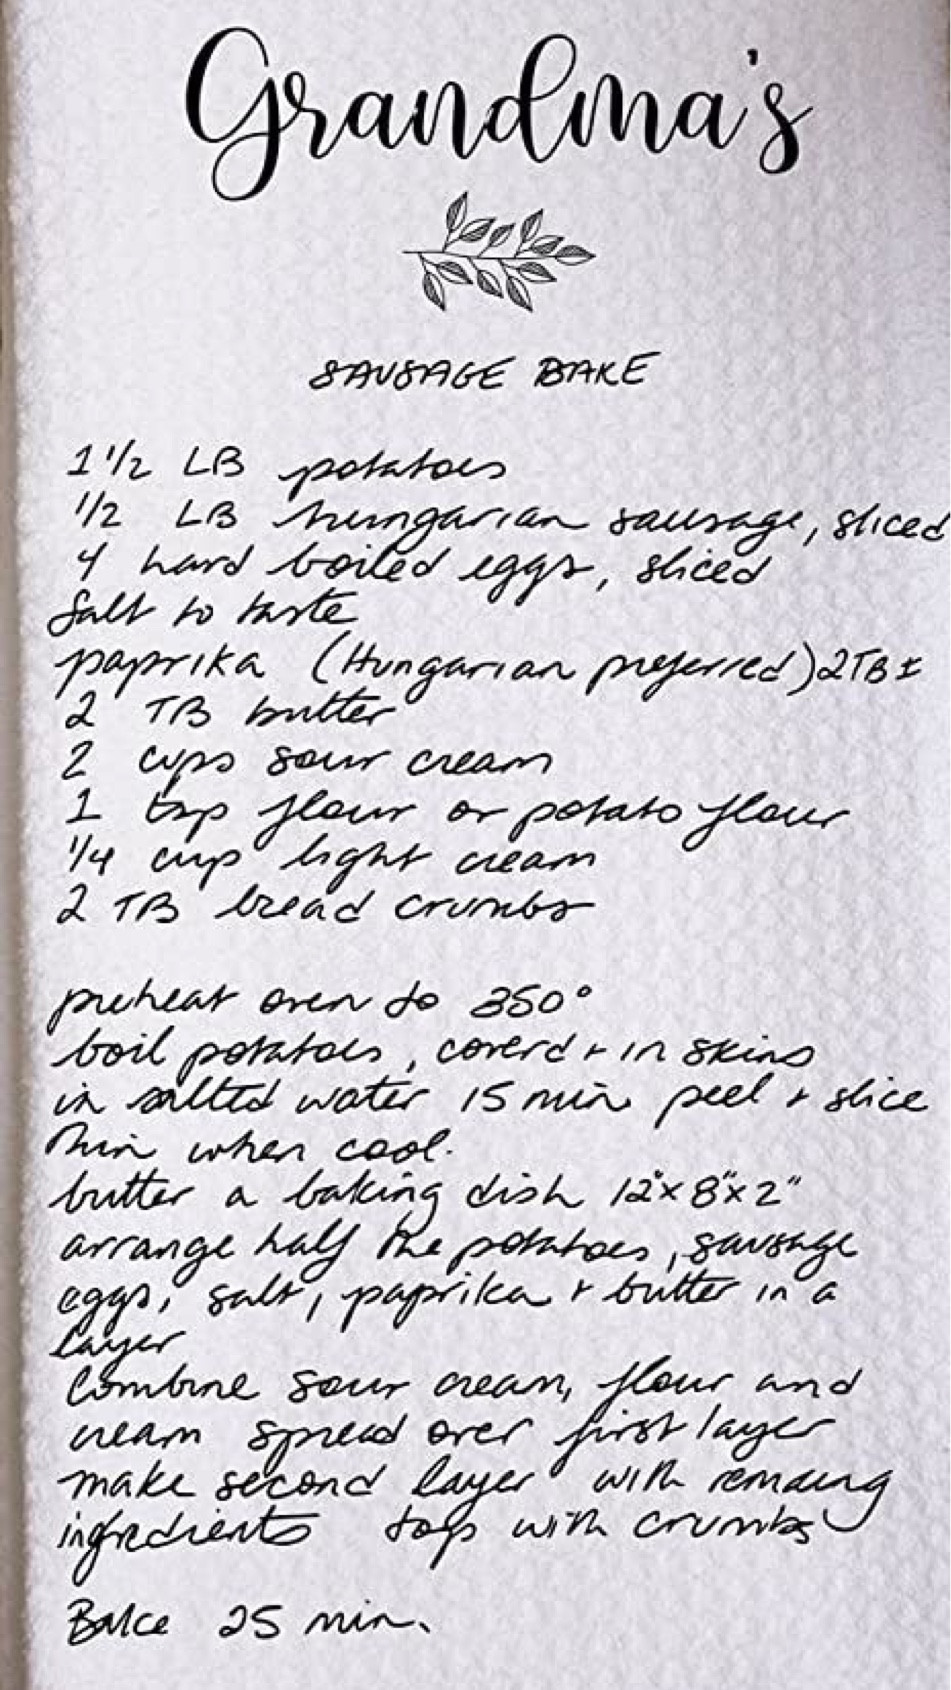 Grandma's
SAUSAGE BAKE
1 1/2 LB potatoes
1/2 LB hungarian sausage, sliced
4 hard boiled eggs, sliced
Salt to taste
paprika (Hungarian preferred) 2TB ±
2 TB butter
2 cups sour cream
1 tsp flour or potato flour
1/4 cup light cream
2 TB bread crumbs
preheat oven to 350°
boil potatoes, coverd + in skins
in salted water 15 min peel + slice
thin when cool.
butter a baking dish 12"x 8"x 2"
arrange half the potatoes, sausage
eggs, salt, paprika + butter in a
layer
Combine sour cream, flour and
cream spread over first layer
make second layer with remaing
ingredients top with crumbs
Bake 25 min.